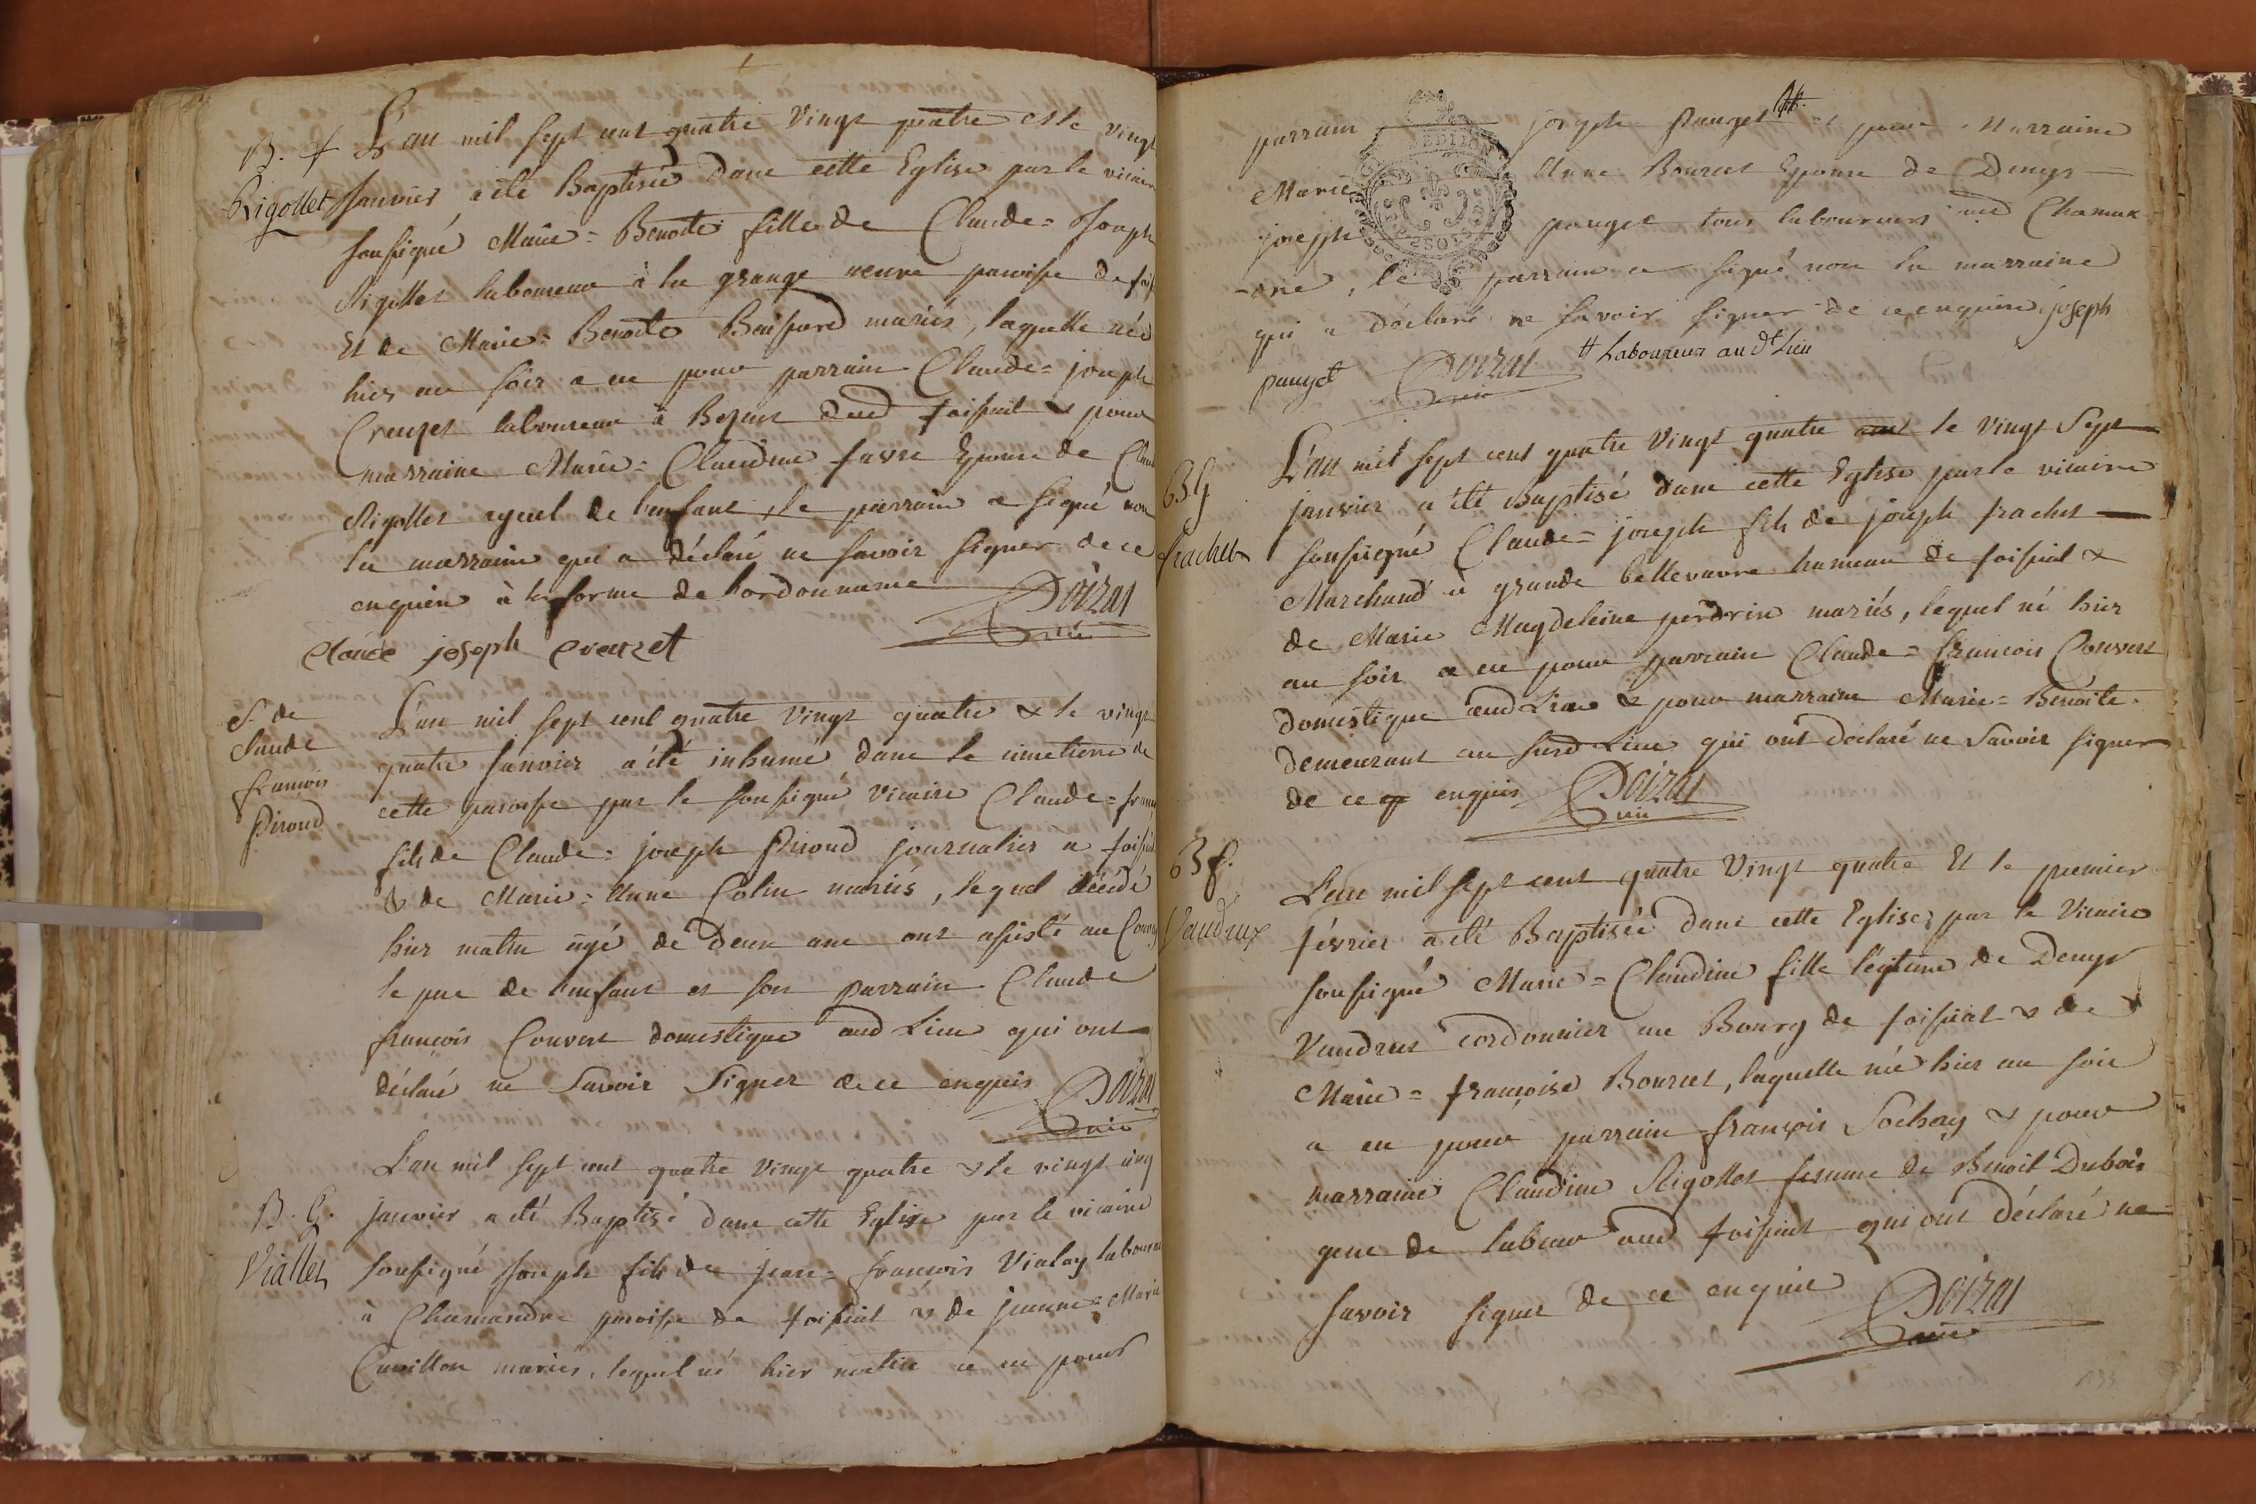 B. f
Rigollet
L'an mil sept cent quatre vingt quatre et le vingt
Janvier a été Baptisée dans cette Eglise par le vicaire
soussigné Marie = Benoite fille de Claude = Joseph
Rigollet laboureur à la grange neuve paroisse de foiss
Et de Marie = Benoite mariés, laquelle née
hier au soir a eu pour parrain Claude = joseph
Creuzet laboureur à dud foissiat & pour
marraine Marie = Claudine favre Epouse de Claud
Rigollet ayeul de l'enfant, le parrain a signé non
la marraine qui a déclaré ne savoir signer de ce
enquise à la forme de l'ordonnance Doizat
vic
Claude joseph creuzet
S. de
Claude
françois
Piroud
L'an mil sept cent quatre vingt quatre & le vingt
quatre Janvier a été inhumé dans le cimetierre de
cette paroisse par le soussigné vicaire Claude = franç
fils de Claude = joseph Piroud journalier a foissiat
& de Marie = Anne Colin mariés, lequel décédé
hier matin âgé de Deux ans ont assisté au Convoy
le pere de l'enfant et son parrain Claude
françois Convert domestique aud Lieu qui ont
déclaré ne savoir Signer de ce enquis Doizat
vic
B. G.
Viallet
L'an mil sept cent quatre vingt quatre & le vingt cinq
janvier a été Baptisé dans cette Eglise par le vicaire
soussigné Joseph fils de jean = françois Vialay laboureur
à Chamandre paroisse de foissiat & de jeanne = Marie
Cavillon mariés, lequel né hier matin a eu pour
parrain joseph Pauget # et pour Marraine
Marie Anne Bouret Epouse de Denys
joseph pauget tous laboureurs aud Chaman
-dre, le parrain a signé non la marraine
qui a déclaré ne savoir signer de ce enquise, joseph
pauget Doizat # Laboureur aud Lieu
vic
B G
frachet
L'an mil sept cent quatre vingt quatre le vingt Sept
janvier a été Baptisé dans cette Eglise par le vicaire
soussigné Claude = joseph fils de joseph frachet
Marchand à grande bellevavre hameau de foissiat &
de Marie Magdeleine perdrix mariés, lequel né hier
au soir a eu pour parrain Claude = françois Convert
domestique aud Lieu & pour marraine Marie = Benoite
demeurant au susd Lieu qui ont déclaré ne Savoir signer
de ce enquis Doizat
vic
B f.
Vaudrux
L'an mil sept cent quatre vingt quatre Et le premier
février a été Baptisée dans cette Eglise par le Vicaire
soussigné Marie = Claudine fille légitime de Denys
Vaudrux cordonnier au Bourg de foissiat & de
Marie = françoise Bouret, laquelle née hier au soir
a eu pour parrain françois Sochay & pour
marraine Claudine Rigollet femme de Benoit Dubois
aud foissiat qui ont déclaré ne
savoir signer de ce enquis Doizat
vic